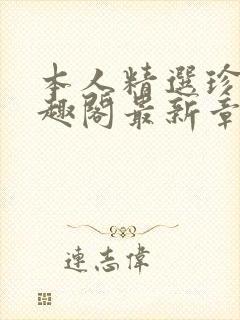 本人精選珍
趣閣最新章
連志偉